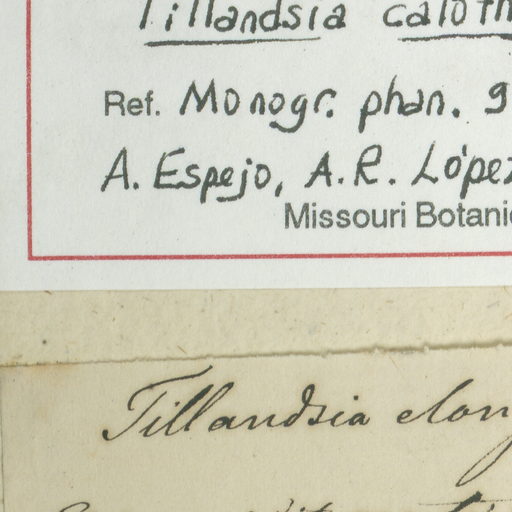 Tillandsia caloth
Ref. Monogr. phan. 9
A. Espejo, A.R. López
Missouri Botani
Tillandsia elong